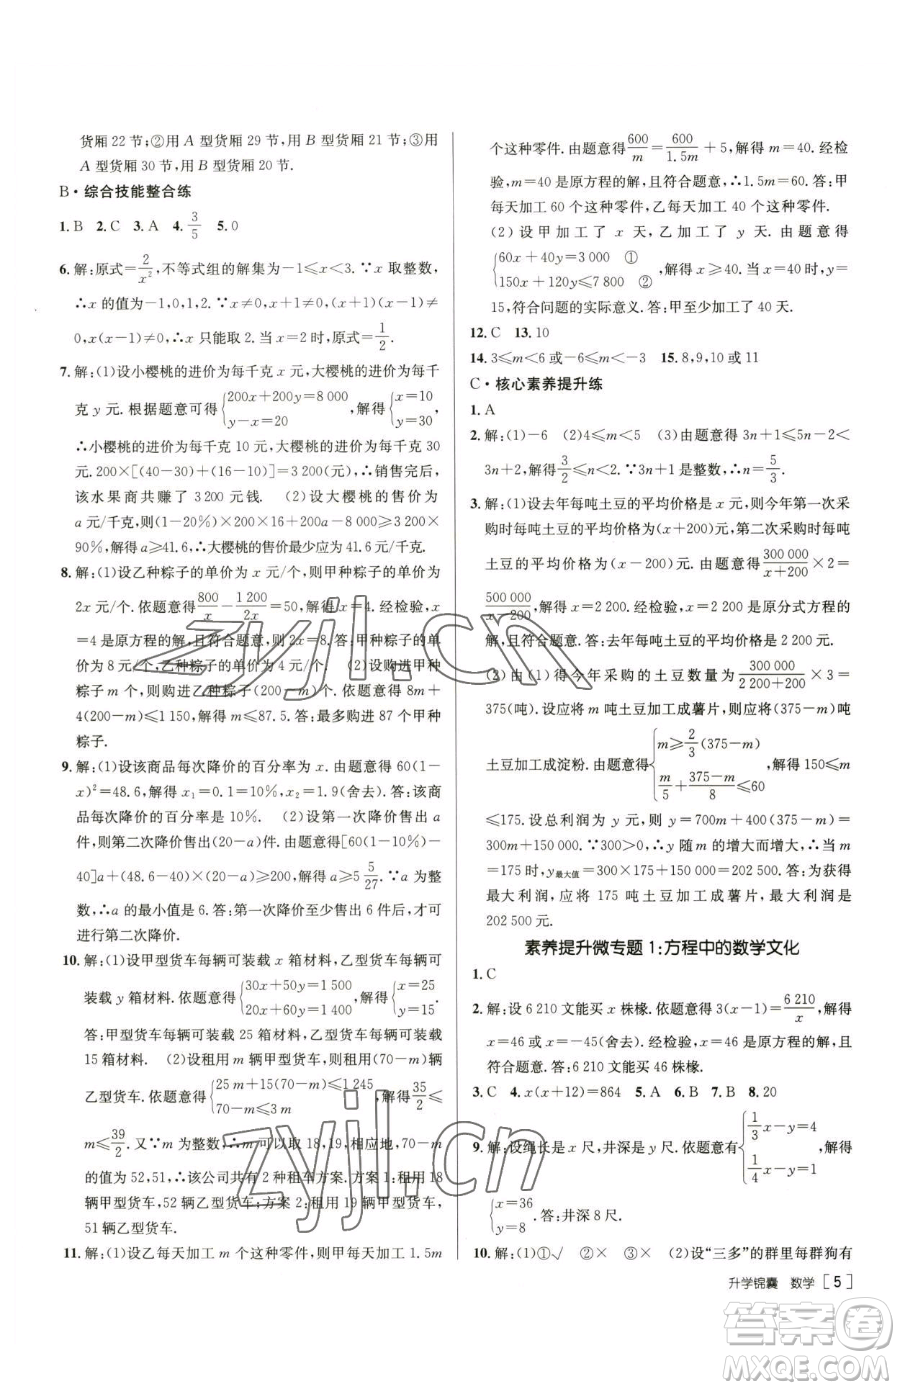 货厢 22 节;②用 A 型货厢 29 节,用 B 型货厢 21 节;③用
A 型货厢 30 节,用 B 型货厢 20 节.
B·综合技能整合练
1. B 2. C 3. A 4. 3/5 5. 0
6. 解:原式=2/x²,不等式组的解集为-1≤x<3.∵x 取整数,
∴x 的值为-1,0,1,2.∵x≠0,x+1≠0,(x+1)(x-1)≠
0,x(x-1)≠0,∴x 只能取 2.当 x=2 时,原式=1/2.
7. 解:(1)设小樱桃的进价为每千克 x 元,大樱桃的进价为每
千克 y 元.根据题意可得{200x+200y=8 000 y-x=20,解得{x=10 y=30.
∴小樱桃的进价为每千克 10 元,大樱桃的进价为每千克 30
元.200×[(40-30)+(16-10)]=3 200(元),∴销售完后,
该水果商共赚了 3 200 元钱. (2)设大樱桃的售价为
a 元/千克,则(1-20%)×200×16+200a-8 000≥3 200×
90%,解得 a≥41.6,∴大樱桃的售价最少应为 41.6 元/千克.
8. 解:(1)设乙种粽子的单价为 x 元/个,则甲种粽子的单价为
2x 元/个.依题意得800/x-1 200/2x=50,解得 x=4.经检验,x
=4 是原方程的解,且符合题意,则 2x=8.答:甲种粽子的单
价为 8 元/个,乙种粽子的单价为 4 元/个. (2)设购进甲种
粽子 m 个,则购进乙种粽子(200-m)个.依题意得 8m+
4(200-m)≤1 150,解得 m≤87.5.答:最多购进 87 个甲种
粽子.
9. 解:(1)设该商品每次降价的百分率为 x.依题意得 60(1-
x)²=48.6,解得 x₁=0.1=10%,x₂=1.9(舍去).答:该商品
每次降价的百分率是 10%. (2)设第一次降价售出 a
件,则第二次降价售出(20-a)件.依题意得[60(1-10%)-
40]a+(48.6-40)×(20-a)≥200,解得 a≥5 5/27.∵a 为整
数,∴a 的最小值是 6.答:第一次降价至少售出 6 件后,才可
进行第二次降价.
10. 解:(1)设甲型货车每辆可装载 x 箱材料,乙型货车每辆可
装载 y 箱材料.依题意得{30x+50y=1 500 20x+60y=1 400,解得{x=25 y=15.
答:甲型货车每辆可装载 25 箱材料,乙型货车每辆可装载
15 箱材料. (2)设租用 m 辆甲型货车,则租用(70-m)辆
乙型货车.依题意得{25m+15(70-m)≤1 245 70-m≤3m,解得35/2≤
m≤39/2.又∵m 为整数,∴m 可以取 18,19,相应地,(70-m)
的值为 52,51,∴该公司共有 2 种租车方案.方案 1:租用 18
辆甲型货车,52 辆乙型货车;方案 2:租用 19 辆甲型货车,
51 辆乙型货车.
11. 解:(1)设乙每天加工 m 个这种零件,则甲每天加工 1.5m
个这种零件.由题意得600/m=600/1.5m+5,解得 m=40.经检
验,m=40 是原方程的解,且符合题意,∴1.5m=60.答:甲
每天加工 60 个这种零件,乙每天加工 40 个这种零件.
(2)设甲加工了 x 天,乙加工了 y 天.由题意得
{60x+40y=3 000 ① 150x+120y≤7 800 ②,解得 x≥40.当 x=40 时,y=
15,符合问题的实际意义.答:甲至少加工了 40 天.
12. C 13. 10
14. 3≤m<6 或-6≤m<-3 15. 8,9,10 或 11
C·核心素养提升练
1. A
2. 解:(1)-6 (2)4≤m<5 (3)由题意得 3n+1≤5n-2<
3n+2,解得3/2≤n<2.∵3n+1 为整数,∴n=5/3.
3. 解:(1)设去年每吨土豆的平均价格是 x 元,则今年第一次采
购时每吨土豆的平均价格为(x+200)元,第二次采购时每吨
土豆的平均价格为(x-200)元.由题意得300 000/(x+200)×2=
500 000/(x-200),解得 x=2 200.经检验,x=2 200 是原分式方程的
解,且符合题意.答:去年每吨土豆的平均价格是 2 200 元.
(2)由(1)得今年采购的土豆数量为300 000/(2 200+200)×3=
375(吨).设应将 m 吨土豆加工成薯片,则应将(375-m)吨
土豆加工成淀粉.由题意得{m≥2/3(375-m) m/5+(375-m)/8≤60,解得 150≤m
≤175.设总利润为 y 元,则 y=700m+400(375-m)=
300m+150 000.∵300>0,∴y 随 m 的增大而增大,∴当 m
=175 时,y最大值=300×175+150 000=202 500.答:为获得
最大利润,应将 175 吨土豆加工成薯片,最大利润是
202 500 元.
素养提升微专题 1:方程中的数学文化
1. C
2. 解:设 6 210 文能买 x 株椽.依题意得 3(x-1)=6 210/x,解得
x=46 或 x=-45(舍去).经检验,x=46 是原方程的解,且
符合题意.答:6 210 文能买 46 株椽.
3. C 4. x(x+12)=864 5. A 6. B 7. B 8. 20
9. 解:设绳长是 x 尺,井深是 y 尺.依题意有{1/3x-y=4 1/4x-y=1,解得
{x=36 y=8.答:井深 8 尺.
10. 解:(1)①√ ②× ③× (2)设“三多”的群里每群狗有
升学锦囊 数学 [5]
zyjl.cn
zyjl.cn
答案圈
MXQE.COM